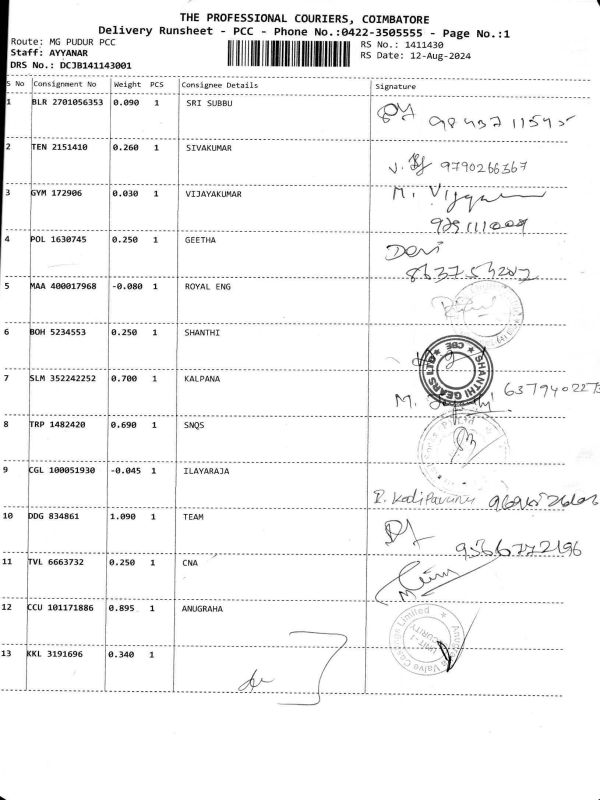 THE PROFESSIONAL COURIERS, COIMBATORE
Delivery Runsheet - PCC - Phone No.:0422-3505555 - Page No.:1
Route: MG PUDUR PCC
RS No.: 1411430
Staff: AYYANAR
RS Date: 12-Aug-2024
DRS No.: DCJB141143001
S No Consignment No Weight PCS Consignee Details Signature
1 BLR 2701056353 0.090 1 SRI SUBBU
2 TEN 2151410 0.260 1 SIVAKUMAR
9790266367
3 GYM 172906 0.030 1 VIJAYAKUMAR
M.
4 POL 1630745 0.250 1 GEETHA
Devi
5 MAA 400017968 -0.080 1 ROYAL ENG
6 BOH 5234553 0.250 1 SHANTHI
SHANTHI GEARS LTD CBE
7 SLM 352242252 0.700 1 KALPANA
M. 6379402273
8 TRP 1482420 0.690 1 SNQS
9 CGL 100051930 -0.045 1 ILAYARAJA
10 DDG 834861 1.090 1 TEAM
9566772196
11 TVL 6663732 0.250 1 CNA
12 CCU 101171886 0.895 1 ANUGRAHA
Anugraha Valve Castings Limited
UNIT-1
SECURITY
13 KKL 3191696 0.340 1